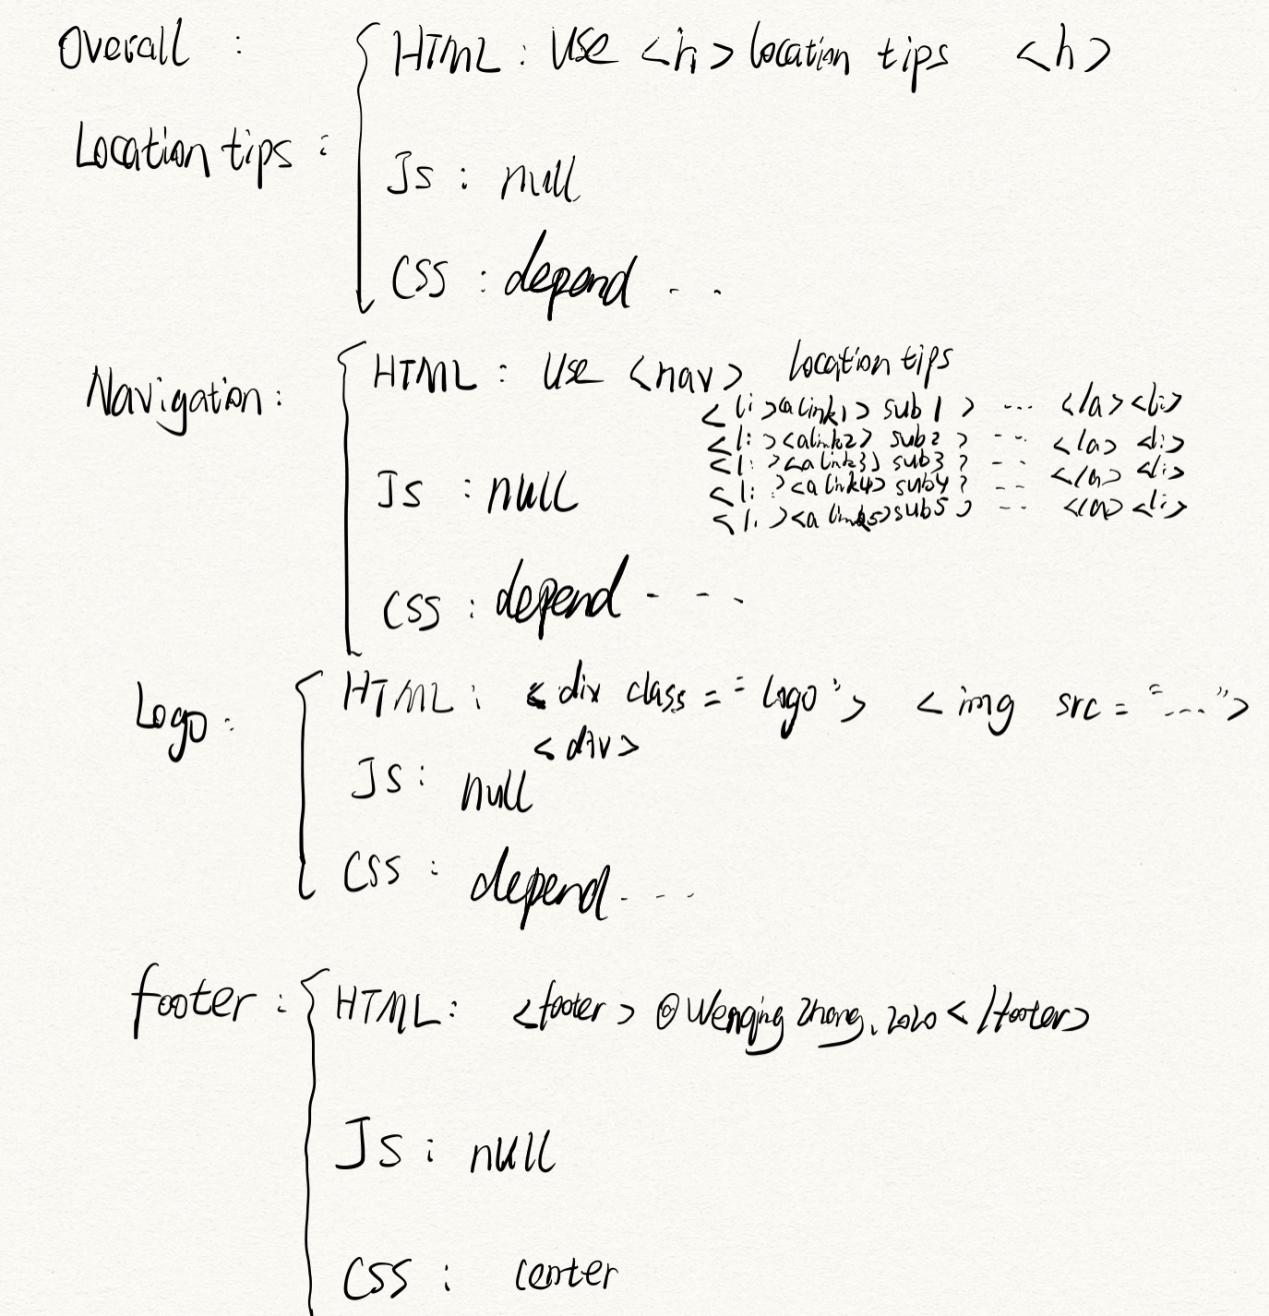 Overall :
HTML : Use <h> location tips <h>
Location tips :
Js : null
CSS : depend . .
Navigation :
HTML : Use <nav> location tips
<li><a link1> sub1 > ... </a><li>
<li><a link2> sub2 > ... </a><li>
<li><a link3> sub3 > ... </a><li>
<li><a link4> sub4 > ... </a><li>
<li><a link5> sub5 > ... </a><li>
Js : null
CSS : depend - - .
Logo :
HTML : <div class = "Logo"> <img src = "....">
<div>
Js : null
CSS : depend. - - .
footer :
HTML : <footer> @Wenqing Zhang, 2020 </footer>
Js : null
CSS : center